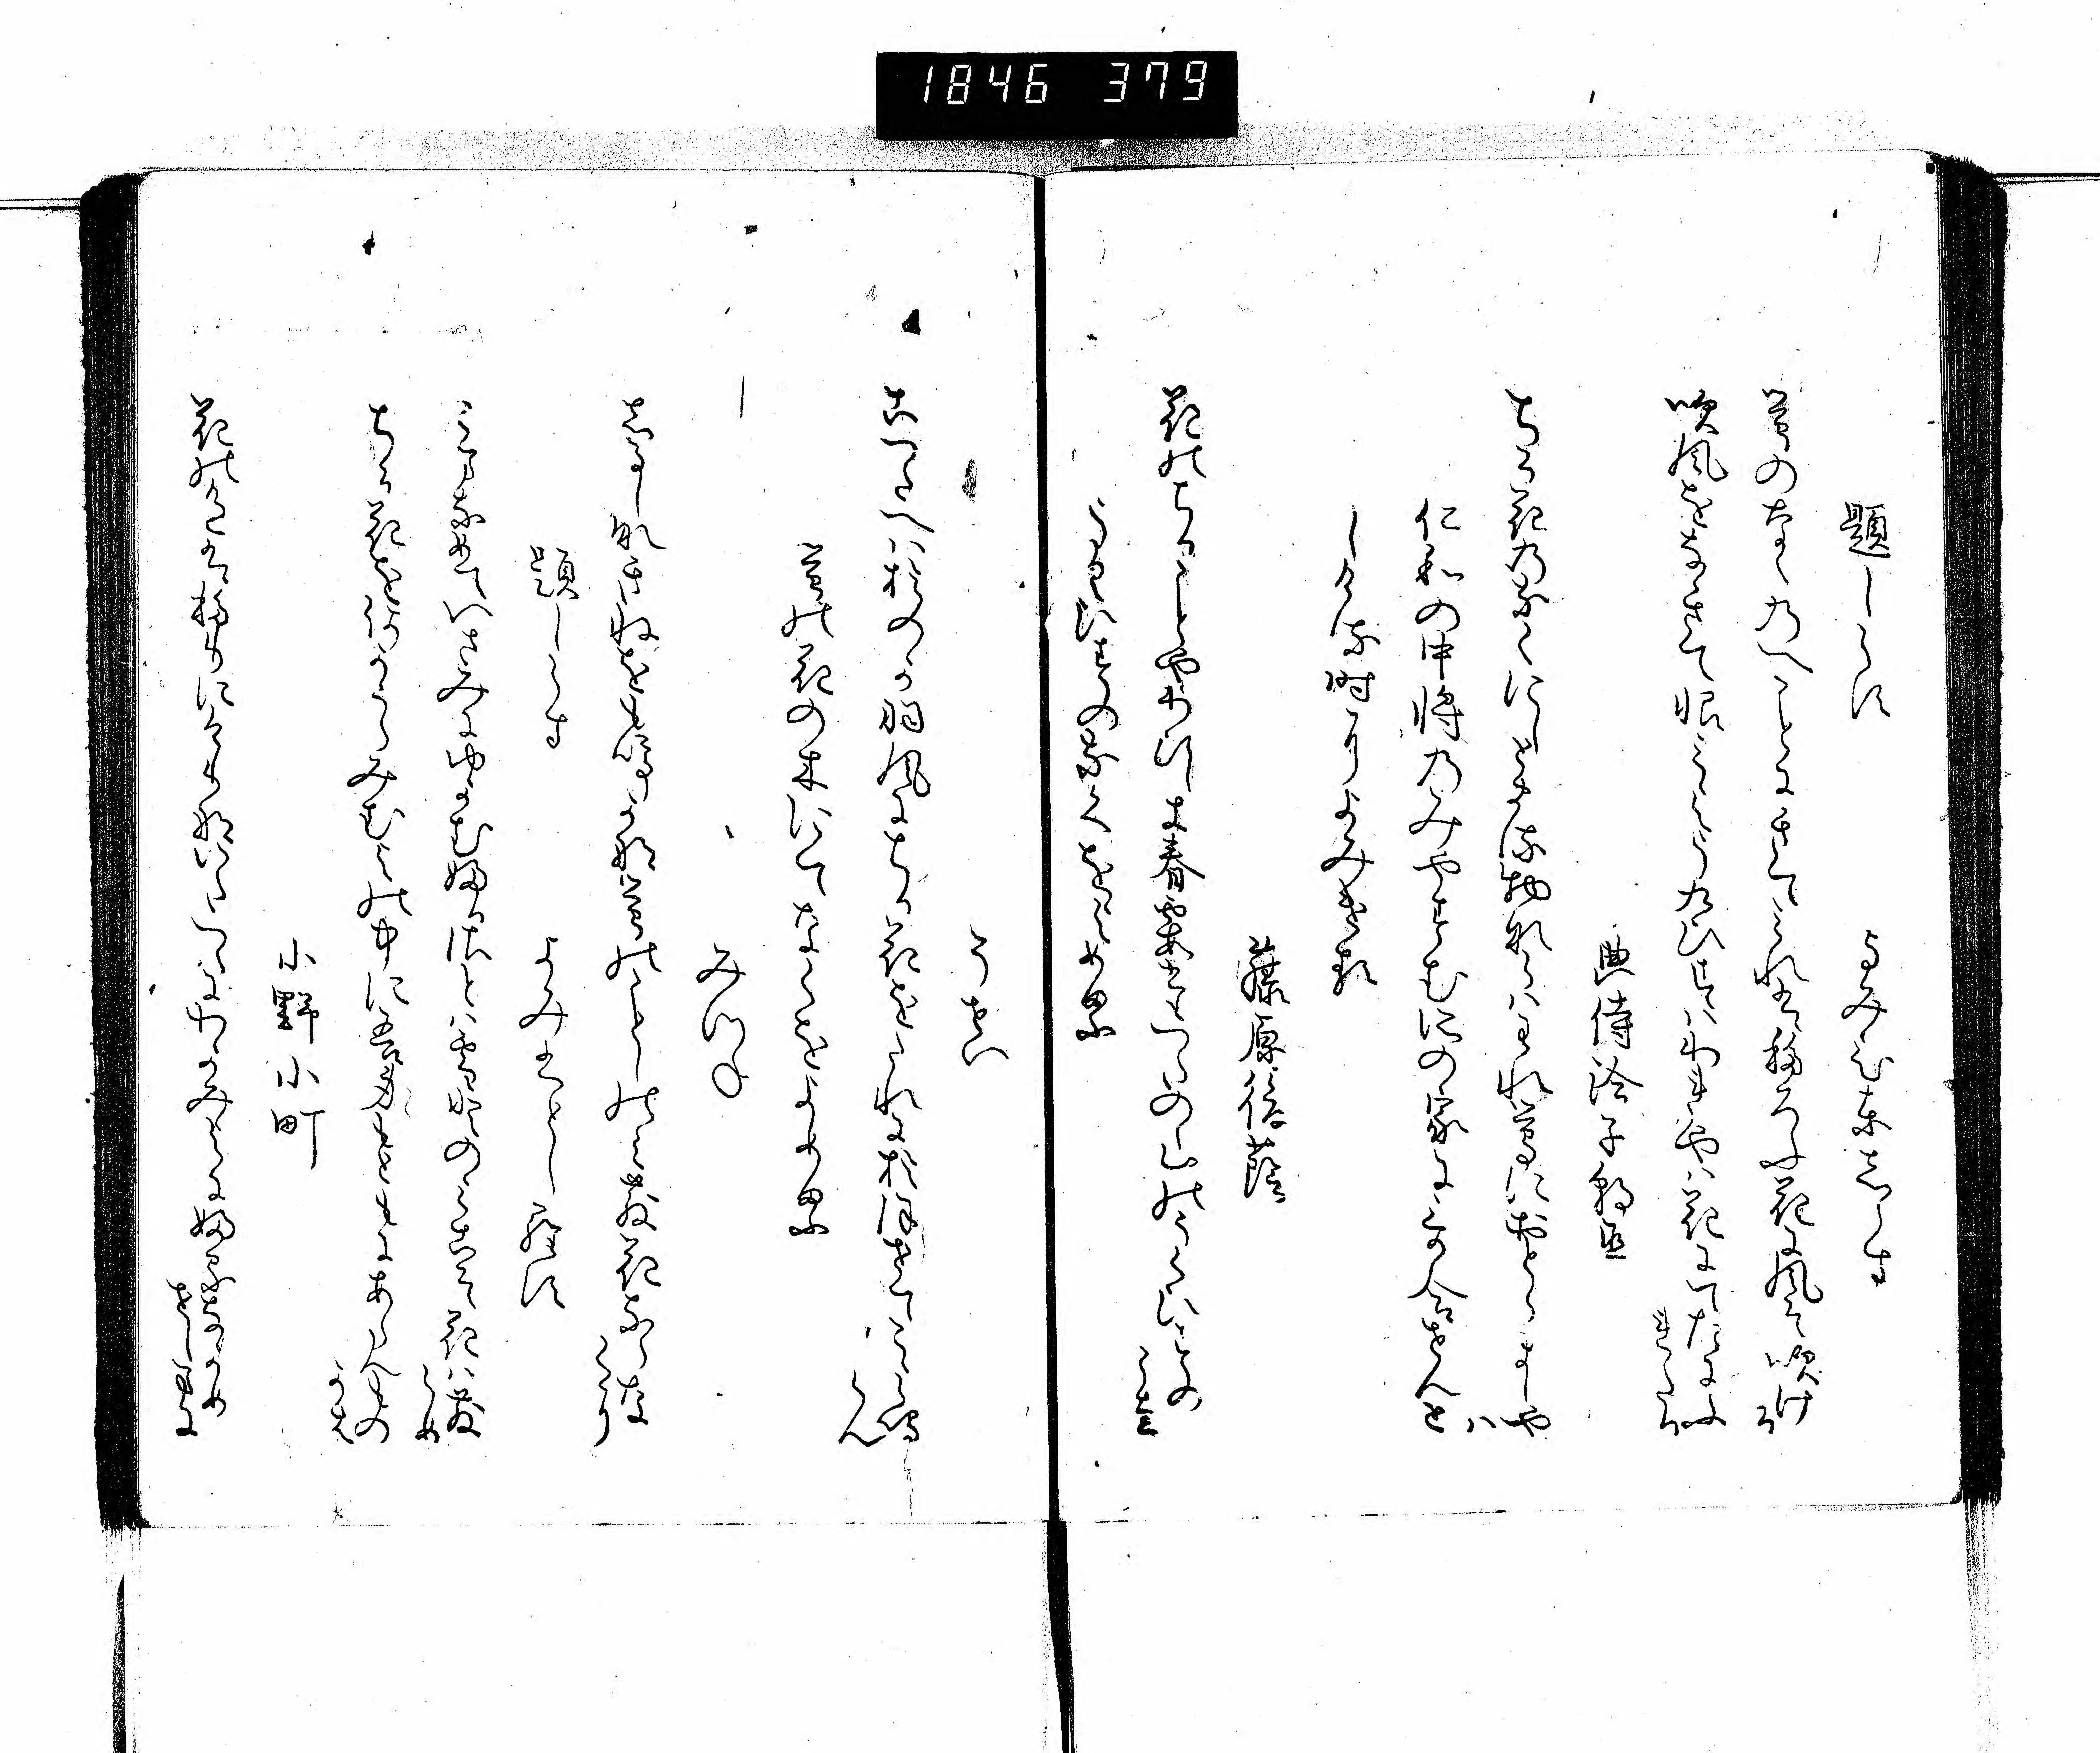 1846 379
題しらす
よみ人しらす
鶯のなくのへことにきてみれはうつろふ花に風そ吹ける
吹風をなきてうらみようくひすはわれやは花にてたにふれたる
典侍洽子朝臣
ちる花のなくにしとまる物ならはわれ鶯におとらましやは
仁和の中将のみやすむところの家にて哥合せんとて
しける時によみける
藤原後蔭
花のちることやわひしき春霞たつたの山のうくひすのこゑ
うくひすのなくをよめる
そせい
こつたへはをのか羽風にちる花をたれにおほせてこゝらなくらん
鶯の花の木にてなくをよめる
みつね
しるしなきねをもなくかな鶯のことしのみちる花ならなくに
題しらす
よみ人しらす
こまなめていさみにゆかむふるさとは雪とのみこそ花はちるらめ
ちる花をなにかうらみむ世中にわか身もともにあらん物かは
小野小町
花の色はうつりにけりないたつらにわか身よにふるなかめせしまに